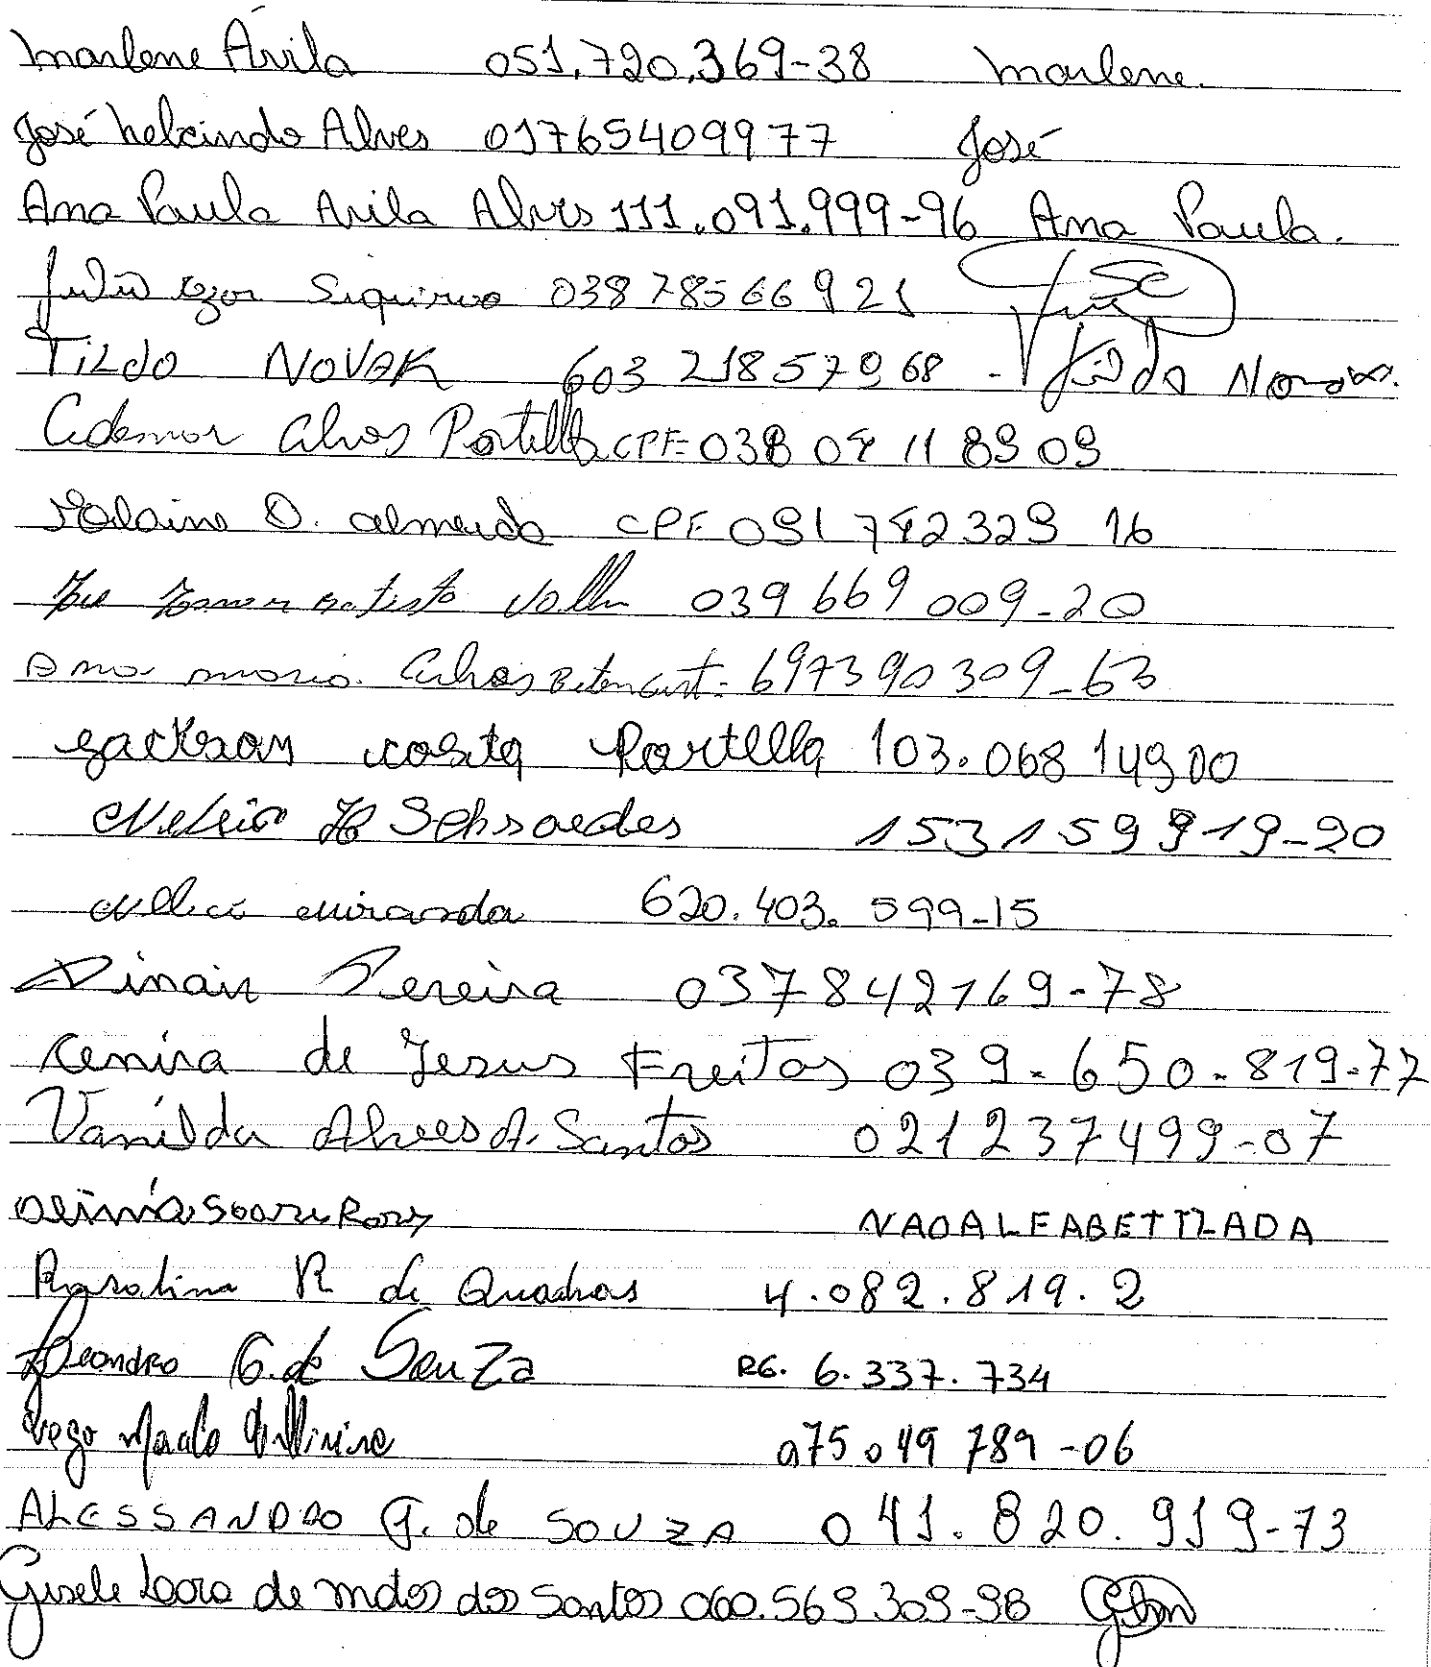 Marlene Ávila 051.720.369-38 Marlene.
José helcindo Alves 01765409977 José
Ana Paula Avila Alves 111.091.999-96 Ana Paula.
03878566921
TiLdo NOVAK 603 218 579 68 - Tildo Novak.
Ademar Alves Portella CPF= 038 04 11 89 09
D. almeida CPF 091 742 329 16
Batista 039 669 009-20
Ana maria Alves Betencurt = 697390309-63
Jackson costa Portella 103.068 149 00
H Schroedes 153159919-20
miranda 620.403.599-15
Dinair Pereira 037842169-78
Cenira de Jesus Freitas 039.650.819-77
Vanilda Alves A. Santos 021237499-07
NAOALFABETIZADA
Rosalina R de Quadros 4.082.819.2
Leandro G. de Souza RG. 6.337.734
075.049 789-06
ALESSANDRO G. de SOUZA 041.820.919-73
Gisele Lara de matos dos Santos 060.569.309-98